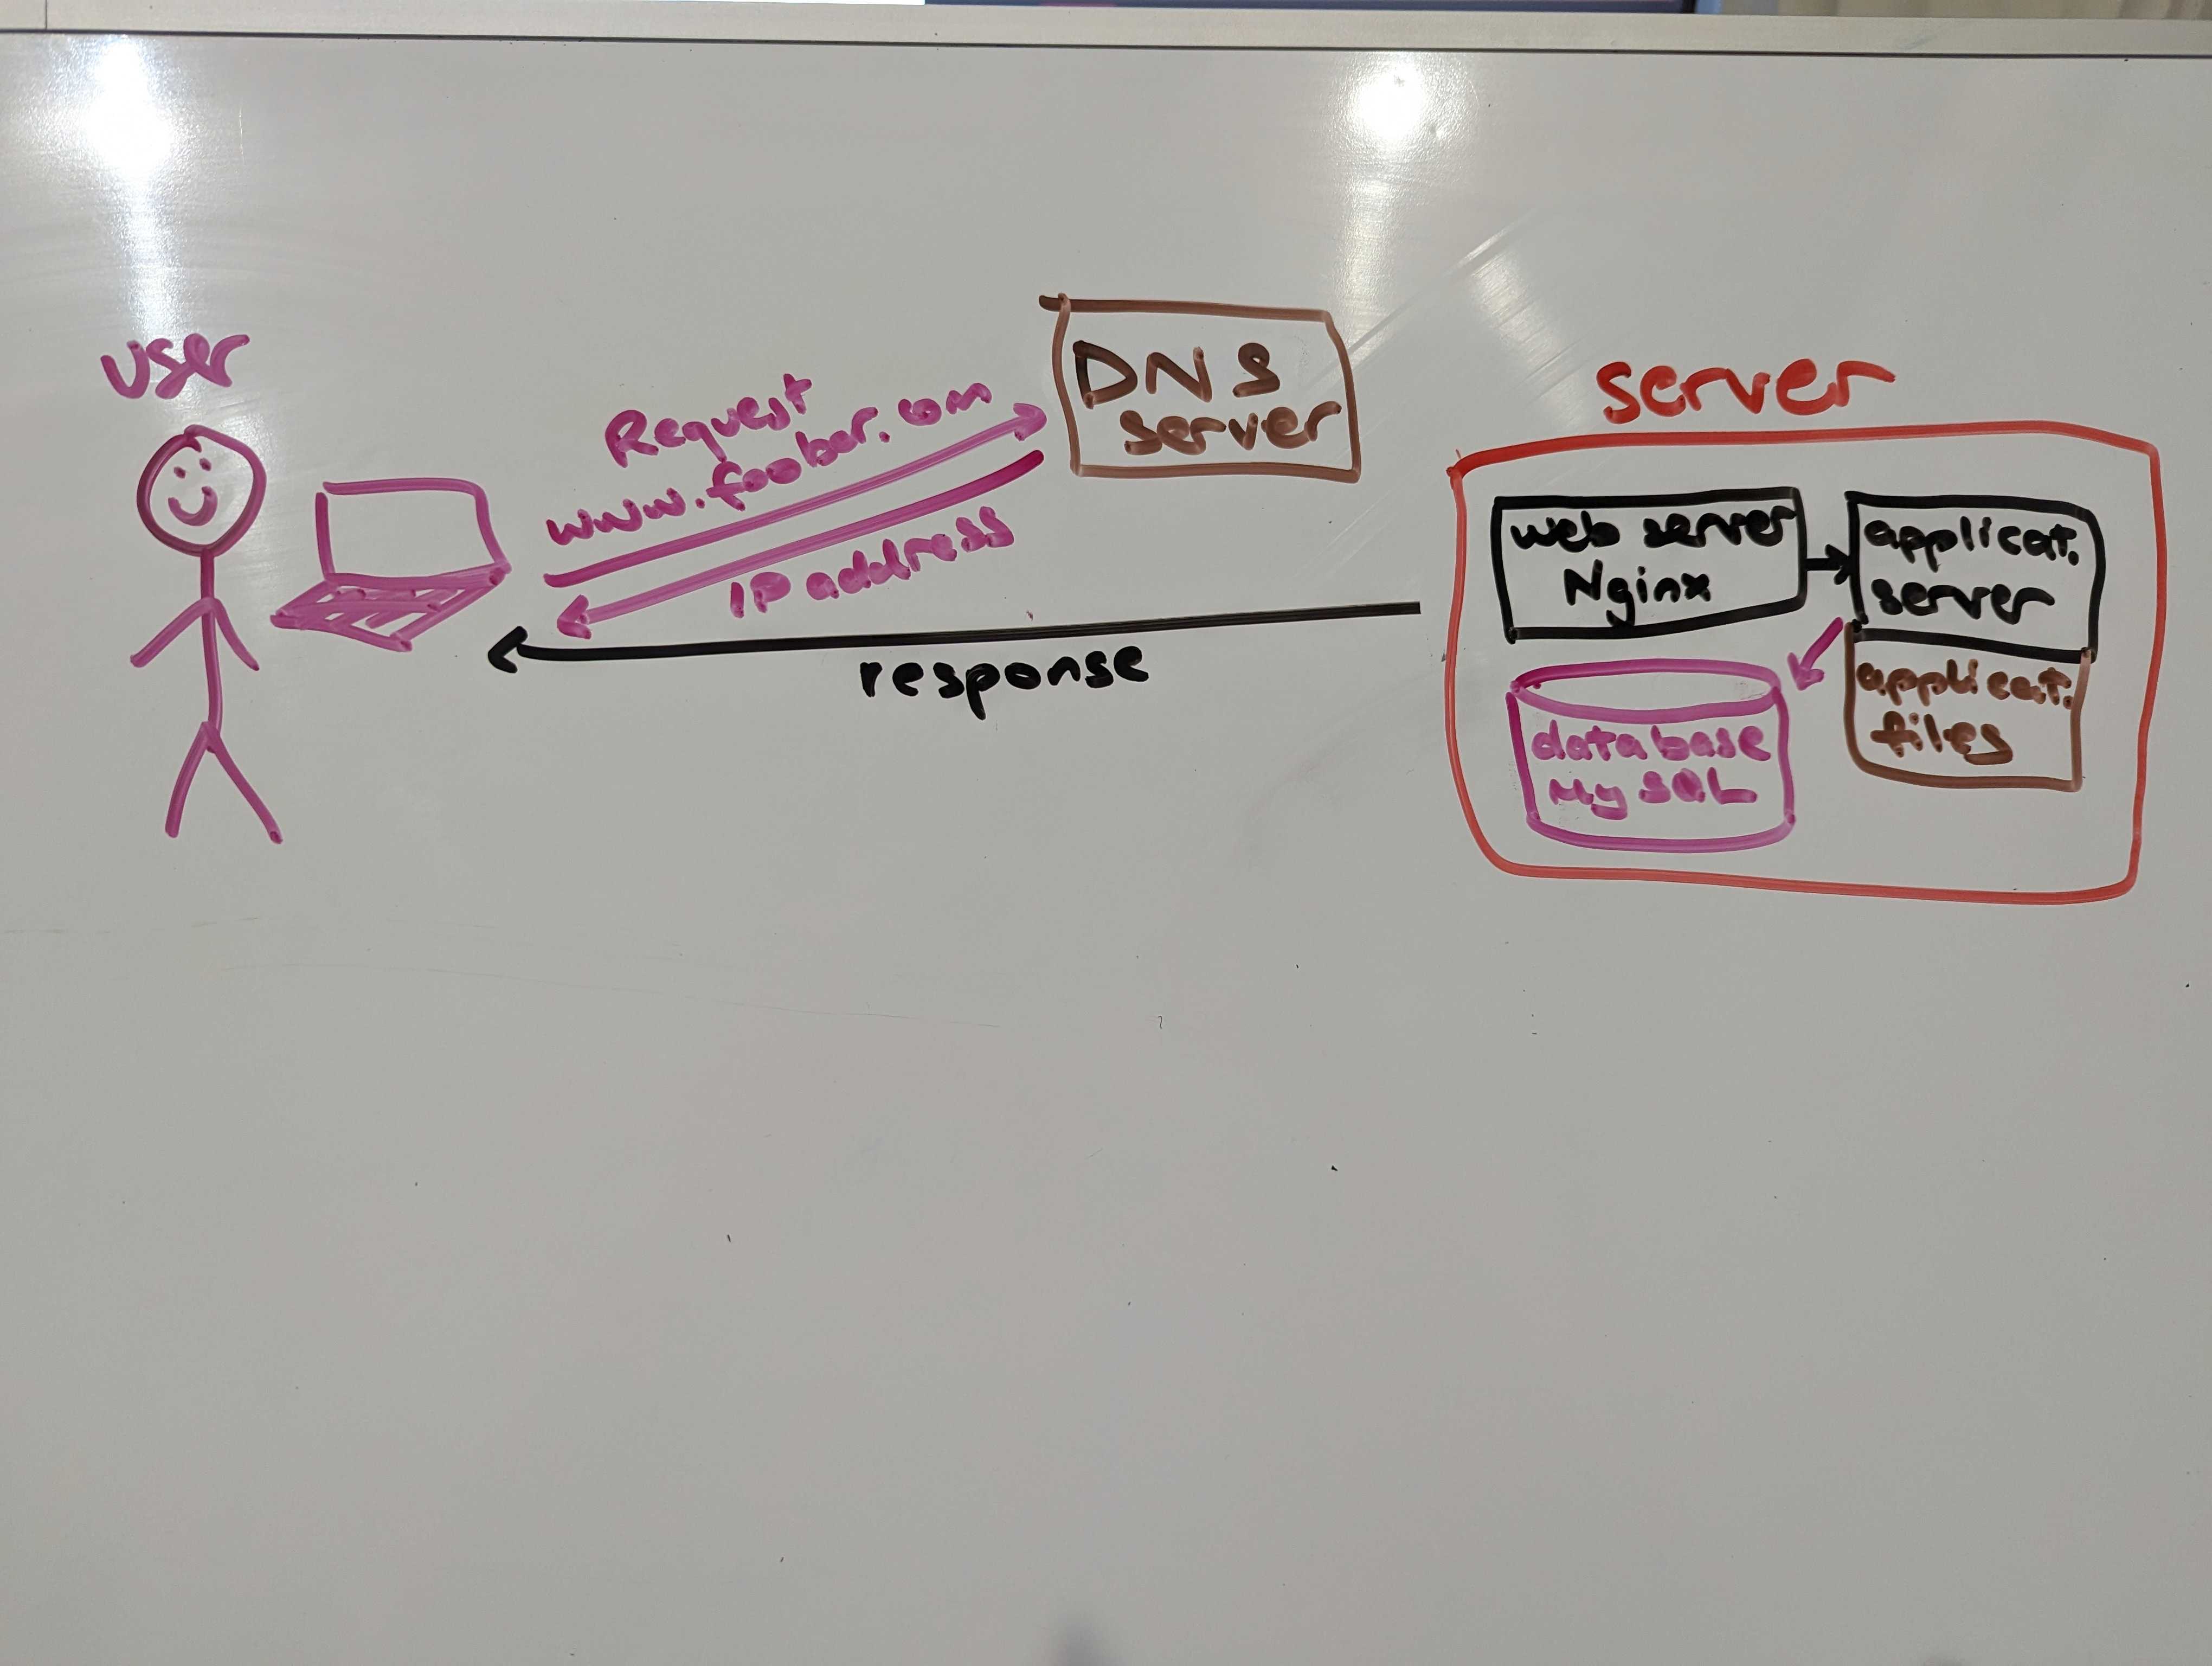 user
Request
www.foobar.com
IP address
response
DNS
server
server
web server
Nginx
applicat.
server
applicat.
files
database
MySQL